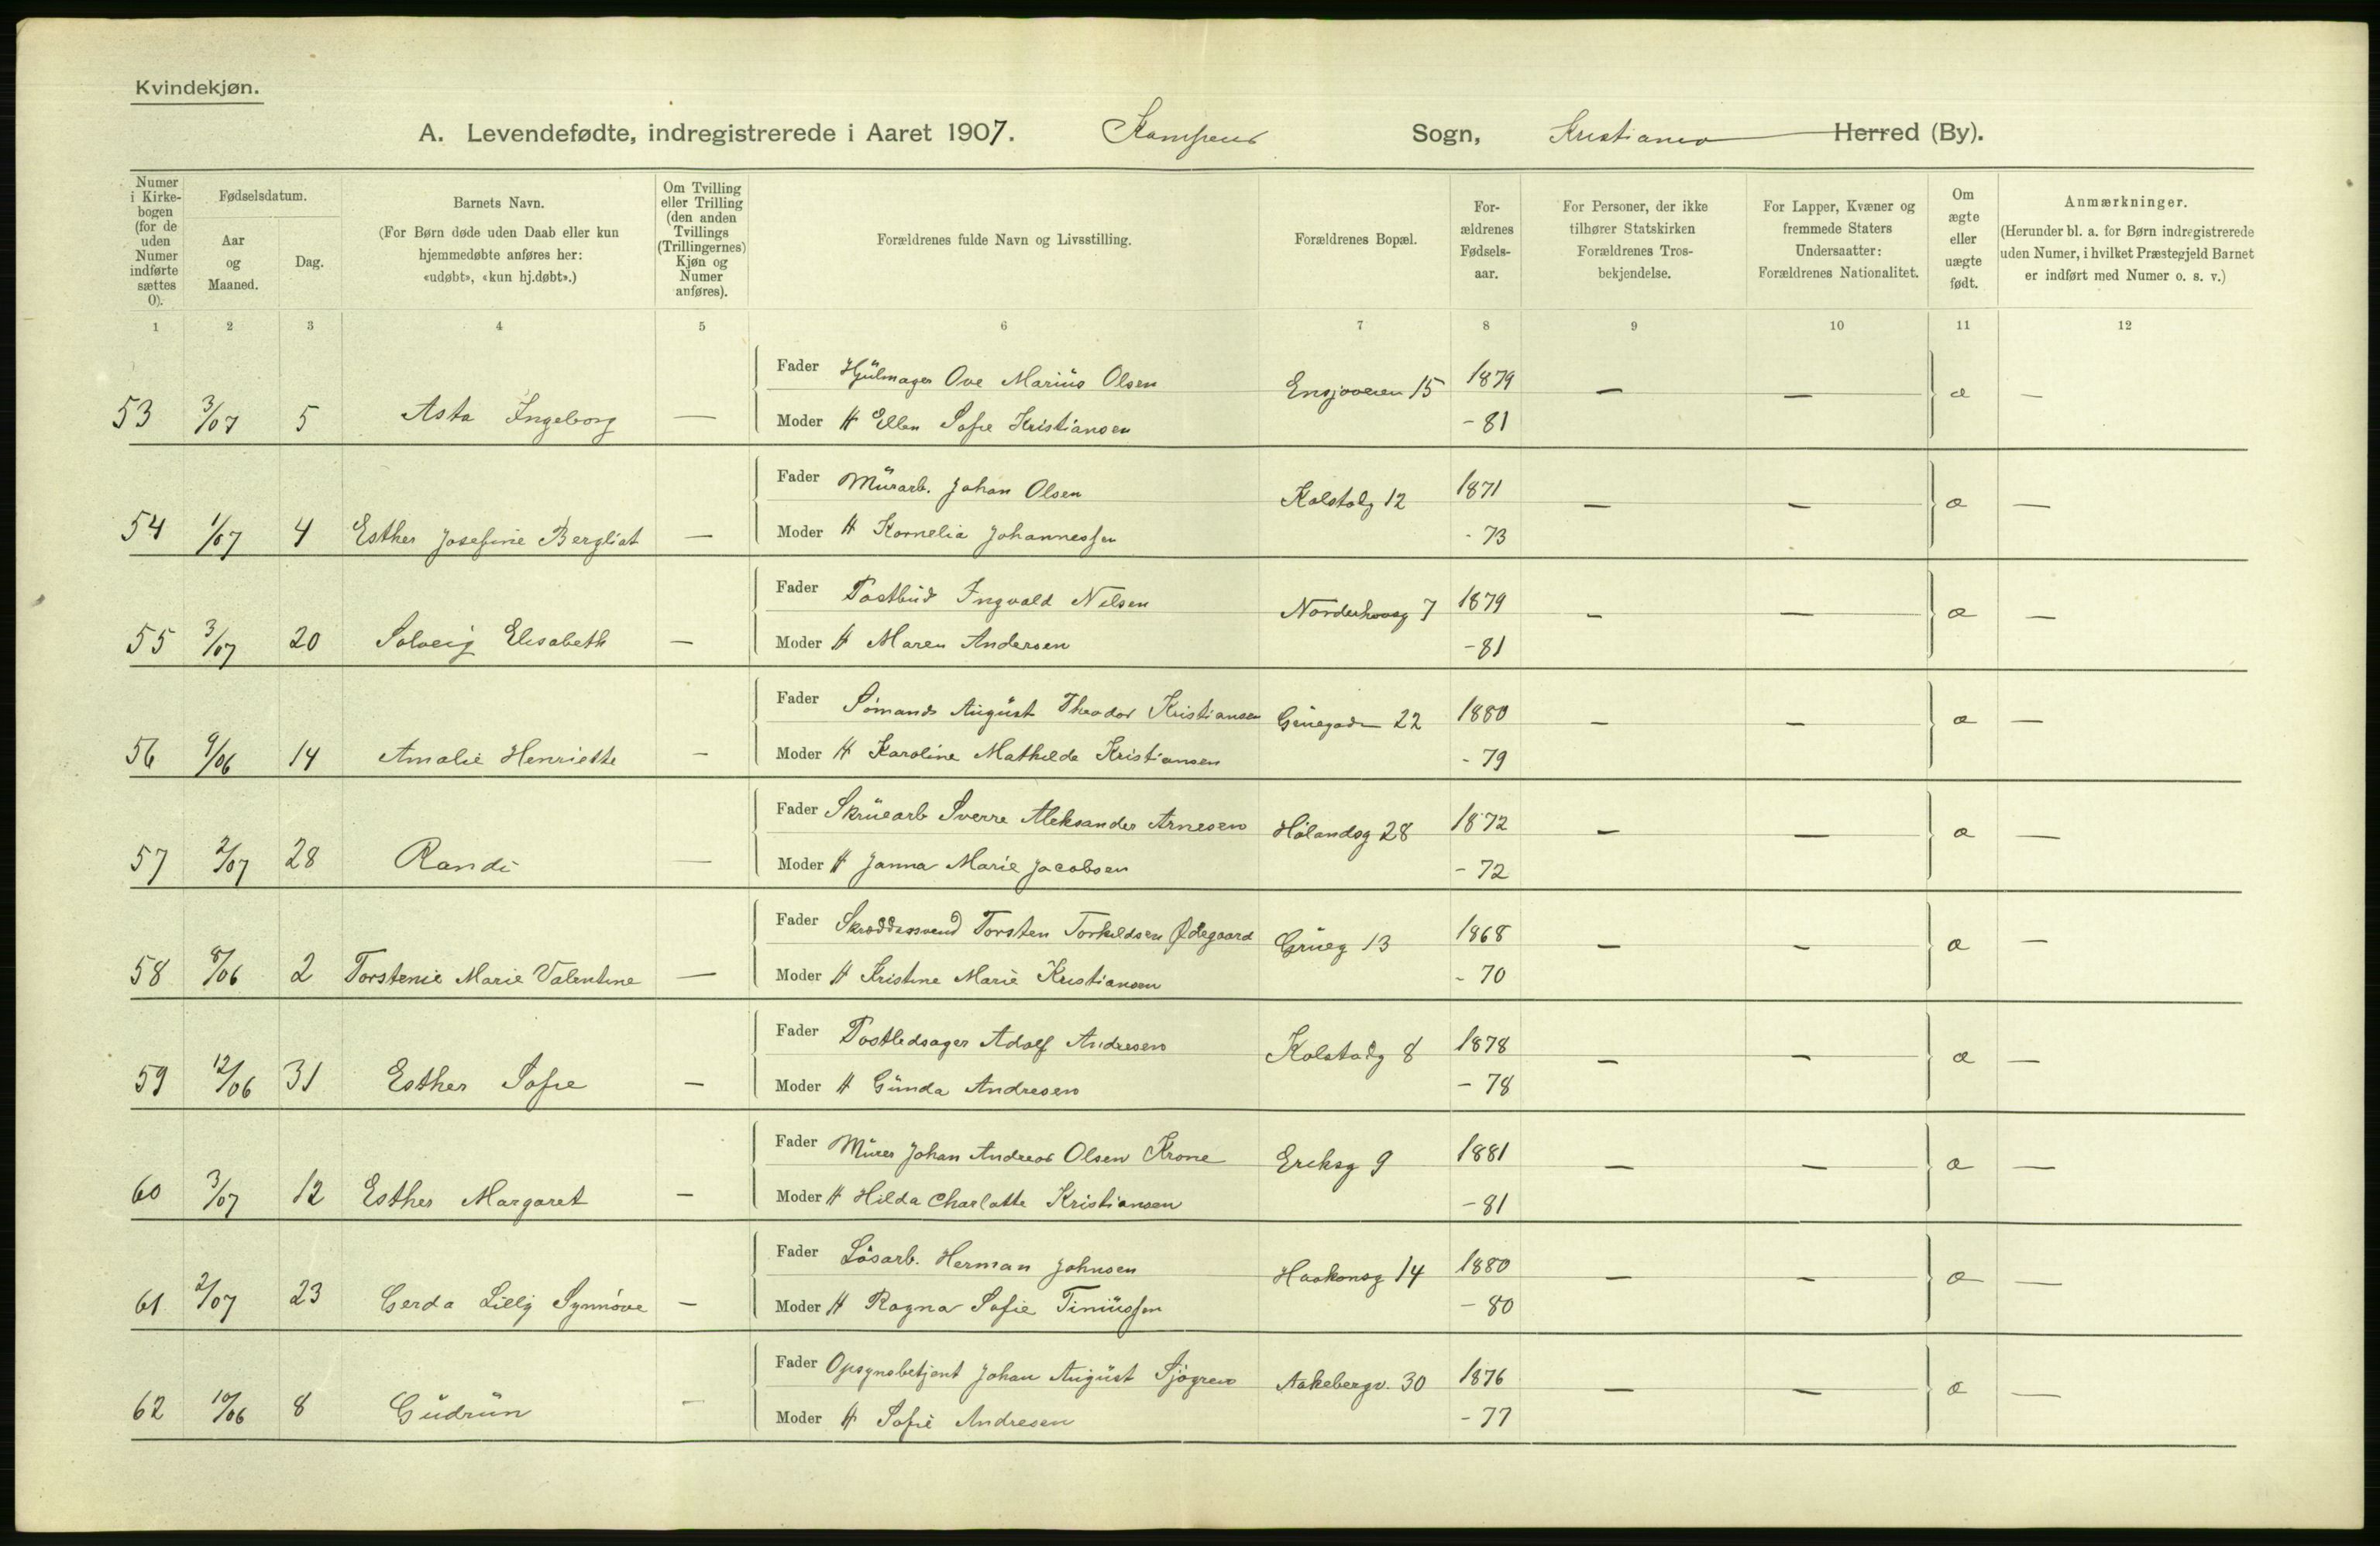 Kvindekjøn.
A. Levendefødte, indregistrerede i Aaret 1907. Kampens Sogn, Kristiania Herred (By).
Numer i Kirkebogen (for de uden Numer indførte sættes 0).
Fødselsdatum.
Aar og Maaned.
Dag.
Barnets Navn.
(For Børn døde uden Daab eller kun hjemmedøbte anføres her: «udøbt», «kun hj.døbt».)
Om Tvilling eller Trilling (den anden Tvillings (Trillingernes) Kjøn og Numer anføres).
Forældrenes fulde Navn og Livsstilling.
Forældrenes Bopæl.
Forældrenes Fødselsaar.
For Personer, der ikke tilhører Statskirken Forældrenes Trosbekjendelse.
For Lapper, Kvæner og fremmede Staters Undersaatter: Forældrenes Nationalitet.
Om ægte eller uægte født.
Anmærkninger.
(Herunder bl. a. for Børn indregistrerede uden Numer, i hvilket Præstegjeld Barnet er indført med Numer o. s. v.)
1 2 3 4 5 6 7 8 9 10 11 12
Fader Hjülmager Ove Marius Olsen Ensjøveien 15 1879 — — æ —
53 3/07 5 Asta Ingeborg — Moder H Ellen Sofie Kristiansen - 81
Fader Murarb. Johan Olsen Kolstadg 12 1871 — — æ —
54 1/07 4 Esther Josefine Bergliot — Moder H Kornelia Johannessen - 73
Fader Postbud Ingvald Nilsen Norderhovsg 7 1879 — — æ —
55 3/07 20 Solveig Elisabeth — Moder H Maren Andersen - 81
Fader Sömand August Theodor Kristiansen Gruegaden 22 1880 — — æ —
56 9/06 14 Amalie Henriette — Moder H Karoline Mathilde Kristiansen - 79
Fader Skruearb Sverre Aleksander Arnesen Hølandsg 28 1872 — — æ —
57 2/07 28 Randi — Moder H Janna Marie Jacobsen - 72
Fader Skræddersvend Torsten Torkildsen Ødegaard Grueg 13 1868 — — æ —
58 8/06 2 Torstenie Marie Valentine — Moder H Kristine Marie Kristiansen - 70
Fader Postledsager Adolf Andresen Kolstadg 8 1878 — — æ —
59 12/06 31 Esther Sofie — Moder H Gunda Andresen - 78
Fader Murer Johan Andreas Olsen Krone Eriksg 9 1881 — — æ —
60 3/07 12 Esther Margaret — Moder H Hilda Charlotte Kristiansen - 81
Fader Lösarb. Herman Johnsen Haakonsg 14 1880 — — æ —
61 2/07 23 Gerda Lilly Synnöve — Moder H Ragna Sofie - 80
Fader Opsynsbetjent Johan August Sjögren Aakebergv. 30 1876 — — æ —
62 10/06 8 Gudrun — Moder H Sofie Andresen - 77